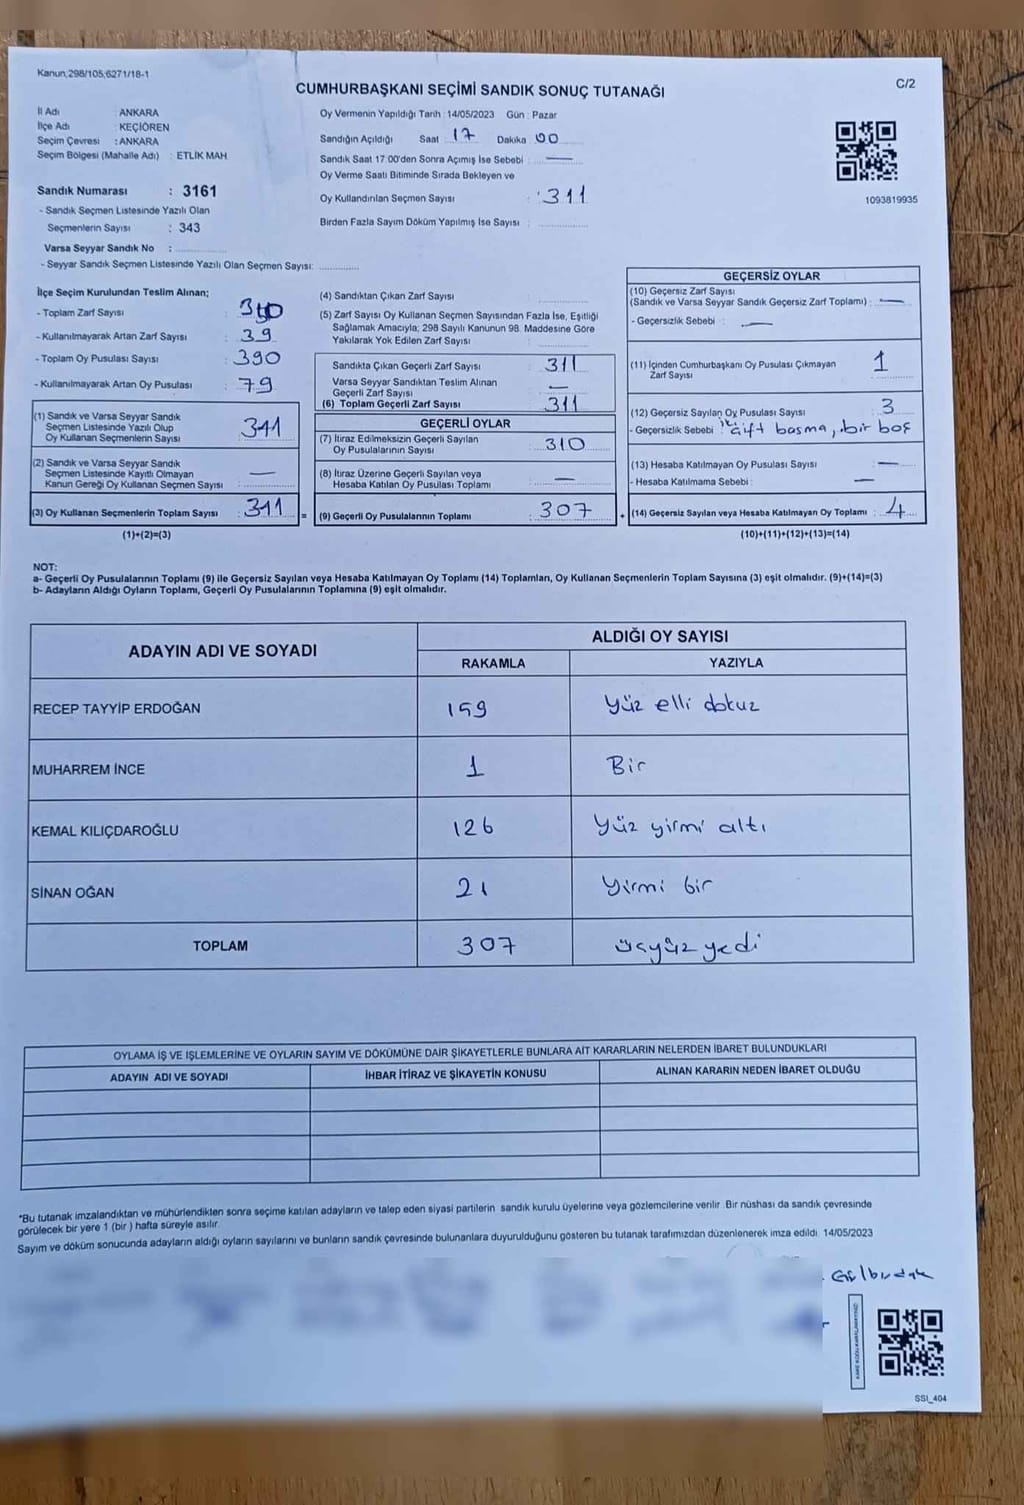 Kanun;298/105;6271/18-1
CUMHURBAŞKANI SEÇİMİ SANDIK SONUÇ TUTANAĞI
C/2
İl Adı : ANKARA
İlçe Adı : KEÇİÖREN
Seçim Çevresi : ANKARA
Seçim Bölgesi (Mahalle Adı) : ETLİK MAH
Sandık Numarası : 3161
- Sandık Seçmen Listesinde Yazılı Olan
Seçmenlerin Sayısı : 343
Varsa Seyyar Sandık No :
- Seyyar Sandık Seçmen Listesinde Yazılı Olan Seçmen Sayısı:
Oy Vermenin Yapıldığı Tarih : 14/05/2023 Gün : Pazar
Sandığın Açıldığı Saat 17 Dakika 00
Sandık Saat 17:00'den Sonra Açımış İse Sebebi : —
Oy Verme Saati Bitiminde Sırada Bekleyen ve
Oy Kullandırılan Seçmen Sayısı : 311
Birden Fazla Sayım Döküm Yapılmış İse Sayısı :
1093819935
İlçe Seçim Kurulundan Teslim Alınan;
- Toplam Zarf Sayısı :
- Kullanılmayarak Artan Zarf Sayısı : 39
- Toplam Oy Pusulası Sayısı : 390
- Kullanılmayarak Artan Oy Pusulası : 79
(1) Sandık ve Varsa Seyyar Sandık
Seçmen Listesinde Yazılı Olup
Oy Kullanan Seçmenlerin Sayısı : 311
(2) Sandık ve Varsa Seyyar Sandık
Seçmen Listesinde Kayıtlı Olmayan
Kanun Gereği Oy Kullanan Seçmen Sayısı : —
(3) Oy Kullanan Seçmenlerin Toplam Sayısı : 311 =
(1)+(2)=(3)
(4) Sandıktan Çıkan Zarf Sayısı :
(5) Zarf Sayısı Oy Kullanan Seçmen Sayısından Fazla İse, Eşitliği
Sağlamak Amacıyla; 298 Sayılı Kanunun 98. Maddesine Göre
Yakılarak Yok Edilen Zarf Sayısı :
Sandıkta Çıkan Geçerli Zarf Sayısı : 311
Varsa Seyyar Sandıktan Teslim Alınan
Geçerli Zarf Sayısı : —
(6) Toplam Geçerli Zarf Sayısı : 311
GEÇERLİ OYLAR
(7) İtiraz Edilmeksizin Geçerli Sayılan
Oy Pusulalarının Sayısı : 310
(8) İtiraz Üzerine Geçerli Sayılan veya
Hesaba Katılan Oy Pusulası Toplamı : —
(9) Geçerli Oy Pusulalarının Toplamı : 307 +
GEÇERSİZ OYLAR
(10) Geçersiz Zarf Sayısı
(Sandık ve Varsa Seyyar Sandık Geçersiz Zarf Toplamı) : —
- Geçersizlik Sebebi : —
(11) İçinden Cumhurbaşkanı Oy Pusulası Çıkmayan
Zarf Sayısı 1
(12) Geçersiz Sayılan Oy Pusulası Sayısı : 3
- Geçersizlik Sebebi : iki çift basma, bir boş
(13) Hesaba Katılmayan Oy Pusulası Sayısı : —
- Hesaba Katılmama Sebebi : —
(14) Geçersiz Sayılan veya Hesaba Katılmayan Oy Toplamı : 4
(10)+(11)+(12)+(13)=(14)
NOT:
a- Geçerli Oy Pusulalarının Toplamı (9) ile Geçersiz Sayılan veya Hesaba Katılmayan Oy Toplamı (14) Toplamları, Oy Kullanan Seçmenlerin Toplam Sayısına (3) eşit olmalıdır. (9)+(14)=(3)
b- Adayların Aldığı Oyların Toplamı, Geçerli Oy Pusulalarının Toplamına (9) eşit olmalıdır.
ADAYIN ADI VE SOYADI
ALDIĞI OY SAYISI
RAKAMLA YAZIYLA
RECEP TAYYİP ERDOĞAN 159 Yüz elli dokuz
MUHARREM İNCE 1 Bir
KEMAL KILIÇDAROĞLU 126 Yüz yirmi altı
SİNAN OĞAN 21 Yirmi bir
TOPLAM 307 üçyüz yedi
OYLAMA İŞ VE İŞLEMLERİNE VE OYLARIN SAYIM VE DÖKÜMÜNE DAİR ŞİKAYETLERLE BUNLARA AİT KARARLARIN NELERDEN İBARET BULUNDUKLARI
ADAYIN ADI VE SOYADI İHBAR İTİRAZ VE ŞİKAYETİN KONUSU ALINAN KARARIN NEDEN İBARET OLDUĞU
*Bu tutanak imzalandıktan ve mühürlendikten sonra seçime katılan adayların ve talep eden siyasi partilerin sandık kurulu üyelerine veya gözlemcilerine verilir. Bir nüshası da sandık çevresinde
görülecek bir yere 1 (bir) hafta süreyle asılır.
Sayım ve döküm sonucunda adayların aldığı oyların sayılarını ve bunların sandık çevresinde bulunanlara duyurulduğunu gösteren bu tutanak tarafımızdan düzenlenerek imza edildi. 14/05/2023
SSI_404